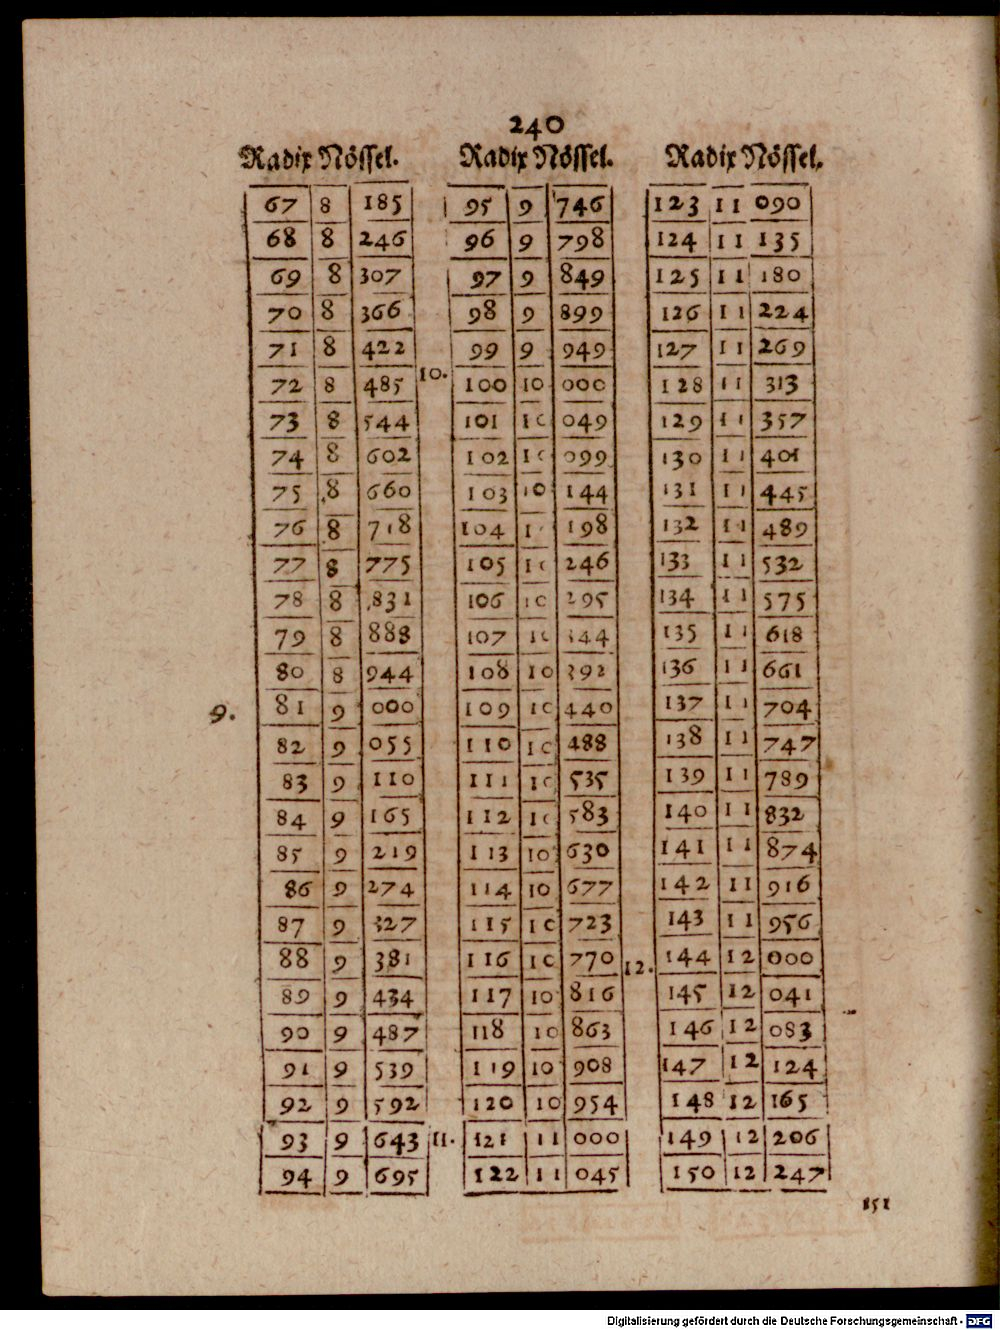 240
Radix Nössel. Radix Nössel. Radix Nössel.
67 8 185 95 9 746 123 11 090
68 8 246 96 9 798 124 11 135
69 8 307 97 9 849 125 11 180
70 8 366 98 9 899 126 11 224
71 8 422 99 9 949 127 11 269
72 8 485 10. 100 10 000 128 11 313
73 8 544 101 10 049 129 11 357
74 8 602 102 10 099 130 11 401
75 8 660 103 10 144 131 11 445
76 8 718 104 198 132 11 489
77 8 775 105 10 246 133 11 532
78 8 831 106 10 295 134 11 575
79 8 888 107 10 344 135 11 618
80 8 944 108 10 392 136 11 661
9. 81 9 000 109 10 440 137 11 704
82 9 055 110 10 488 138 11 747
83 9 110 111 10 535 139 11 789
84 9 165 112 10 583 140 11 832
85 9 219 113 10 630 141 11 874
86 9 274 114 10 677 142 11 916
87 9 327 115 10 723 143 11 956
88 9 381 116 10 770 12. 144 12 000
89 9 434 117 10 816 145 12 041
90 9 487 118 10 863 146 12 083
91 9 539 119 10 908 147 12 124
92 9 592 120 10 954 148 12 165
93 9 643 11. 121 11 000 149 12 206
94 9 695 122 11 045 150 12 247
151
Digitalisierung gefördert durch die Deutsche Forschungsgemeinschaft - DFG